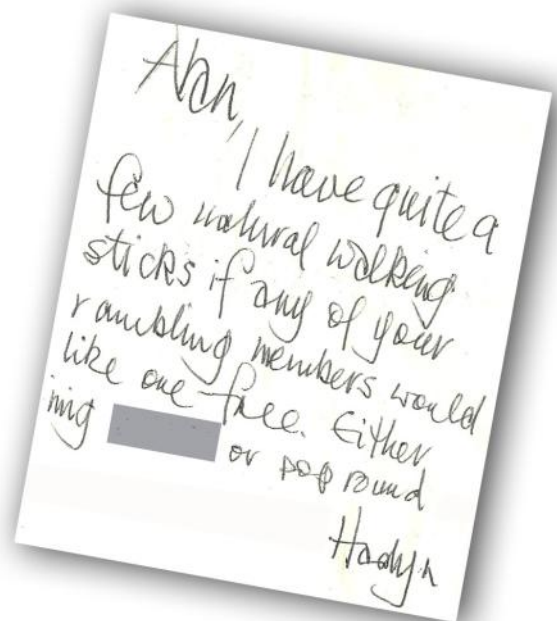 Alan,
I have quite a
few natural walking
sticks if any of your
rambling members would
like one free. Either
ring
or pop round
Hadyn